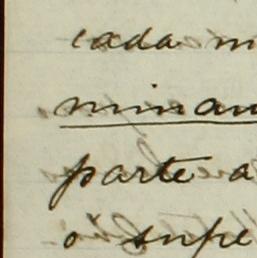 cada m
minan
parte a
o supe